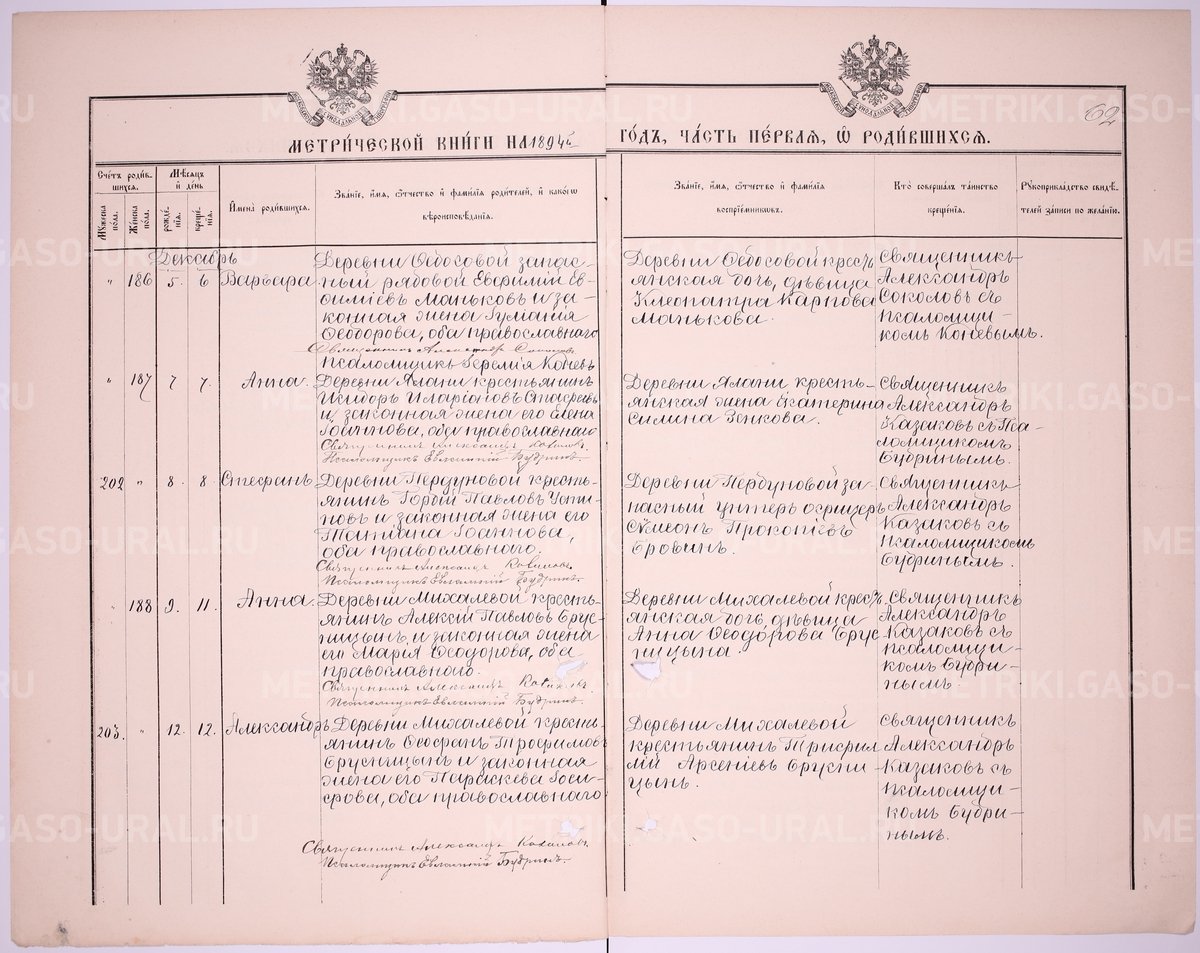 62
МЕТРИ́ЧЕСКОЙ КНИ́ГИ НА 1894й ГО́ДЪ, ЧА́СТЬ ПЕ́РВАѦ, Ѡ҆ РОДИ́ВШИХСѦ.
Сче́тъ роди́вшихсѧ.
Мѣ́сѧцъ и҆ де́нь
Мꙋ́жеска по́ла.
Же́нска по́ла.
рожде́нїѧ.
креще́нїѧ.
И҆мена̀ роди́вшихсѧ.
Зва́нїе, и҆́мѧ, ѻ҆́тчество и҆ фами́лїѧ роди́телей, и҆ како́гѡ
вѣроисповѣ́данїѧ.
Зва́нїе, и҆́мѧ, ѻ҆́тчество и҆ фами́лїѧ
воспрїе́мникѡвъ.
Кто̀ соверша́лъ та́инство
креще́нїѧ.
Рꙋкоприкла́дство свидѣ́-
телей за́писи по жела́нїю.
Декабрь
" 186 5. 6 Варвара
Деревни Ѳедосовой запас-
ный рядовой
Маньковъ и за-
конная жена
Ѳеодорова, оба православнаго
Священникъ Александръ Соколовъ
Псаломщикъ Іеремія Коневъ
Деревни Ѳедосовой кресть
янская дочь, дѣвица
Клеопатра Карпова
Манькова.
Священникъ
Александръ
Соколовъ съ
псаломщи-
комъ Коневымъ.
" 187 7. 7. Анна.
Деревни Ялани крестьянинъ
Исидоръ Иларіоновъ
и законная жена его Елена
Іоаннова, оба православнаго
Священникъ Александръ Казаковъ
Псаломщикъ Евлампій Будринъ.
Деревни Ялани кресть-
янская жена Екатерина
Силина Зенкова.
Священникъ
Александръ
Казаковъ съ Пса-
ломщикомъ
Будринымъ.
202 " 8. 8. Стефанъ
Деревни Пердуновой кресть-
янинъ Павловъ Усти-
новъ и законная жена его
Татіана Іоаннова,
оба православнаго.
Священникъ Александръ Казаковъ
Псаломщикъ Евлампій Будринъ.
Деревни Пердуновой за-
пасный унтеръ офицеръ
Сѵмеонъ Прокопіевъ
Бровинъ.
Священникъ
Александръ
Казаковъ съ
Псаломщикомъ
Будринымъ.
" 188 9. 11. Анна
Деревни Михалевой кресть-
янинъ Алексій Павловъ Брус-
ницынъ и законная жена
его Марія Ѳеодорова, оба
православнаго.
Священникъ Александръ Казаковъ.
Псаломщикъ Евлампій Будринъ.
Деревни Михалевой кресть
янская дочь, дѣвица
Анна Ѳеодорова Брус
ницына.
Священникъ
Александръ
Казаковъ съ
псаломщи-
комъ Будри-
нымъ
203. " 12. 12. Александръ
Деревни Михалевой кресть-
янинъ Ѳеофанъ Трофимовъ
Брусницынъ и законная
жена его Параскева Іоси-
фова, оба православнаго
Священникъ Александръ Казаковъ
Псаломщикъ Евлампій Будринъ.
Деревни Михалевой
крестьянинъ Трифил
лій Арсеніевъ Брусни
цынъ.
Священникъ
Александръ
Казаковъ съ
псаломщи-
комъ Будри-
нымъ.
METRIKI.GASO-URAL.RU